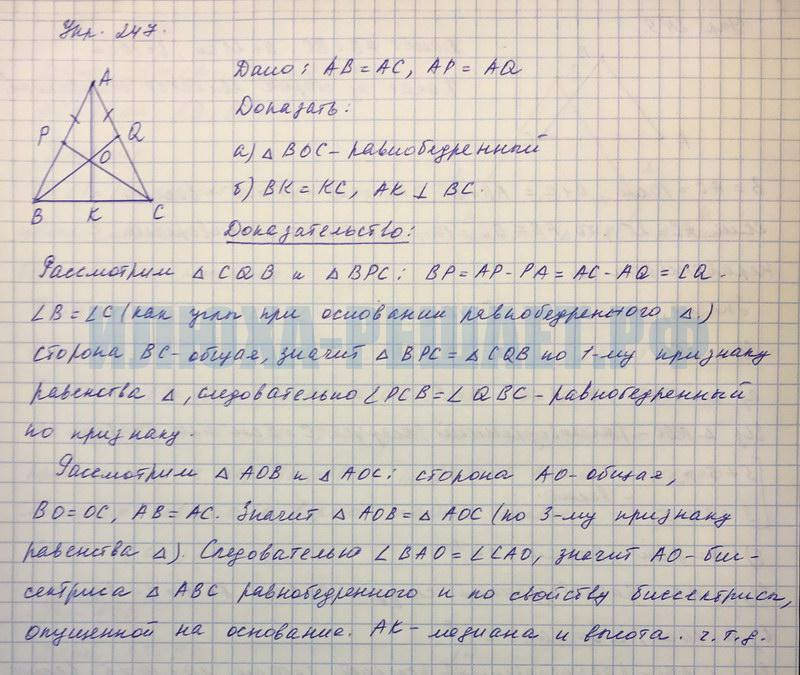 Упр. 247.
Дано: AB = AC, AP = AQ
Доказать:
а) △ BOC - равнобедренный
б) BK = KC, AK ⊥ BC.
Доказательство:
A
P
Q
O
B
K
C
Рассмотрим △ CQB и △ BPC: BP = AP - PA = AC - AQ = CQ.
∠B = ∠C (как углы при основании равнобедренного △.)
сторона BC - общая, значит △ BPC = △ CQB по 1-му признаку
равенства △, следовательно ∠PCB = ∠QBC - равнобедренный
по признаку.
Рассмотрим △ AOB и △ AOC: сторона AO - общая,
BO = OC, AB = AC. Значит △ AOB = △ AOC (по 3-му признаку
равенства △). Следовательно ∠BAO = ∠CAO, значит AO - бис-
сектриса △ ABC равнобедренного и по свойству биссектрисы,
опущенной на основание. AK - медиана и высота. ч.т.д.